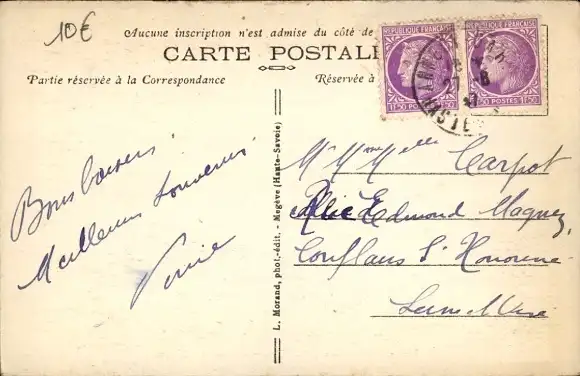 10€
Aucune inscription n'est admise du côté de
CARTE POSTALE
Partie réservée à la Correspondance
Réservée à
RÉPUBLIQUE FRANÇAISE
1F50 POSTES 1F50
RÉPUBLIQUE FRANÇAISE
POSTES 1F50
Bons baisers
Meilleurs souvenirs
L. Morand, phot.-édit. - Megève (Haute-Savoie)
M Mme Melle Carpot
Rue Edmond Magnez,
Conflans Ste Honorine
Seine et Oise